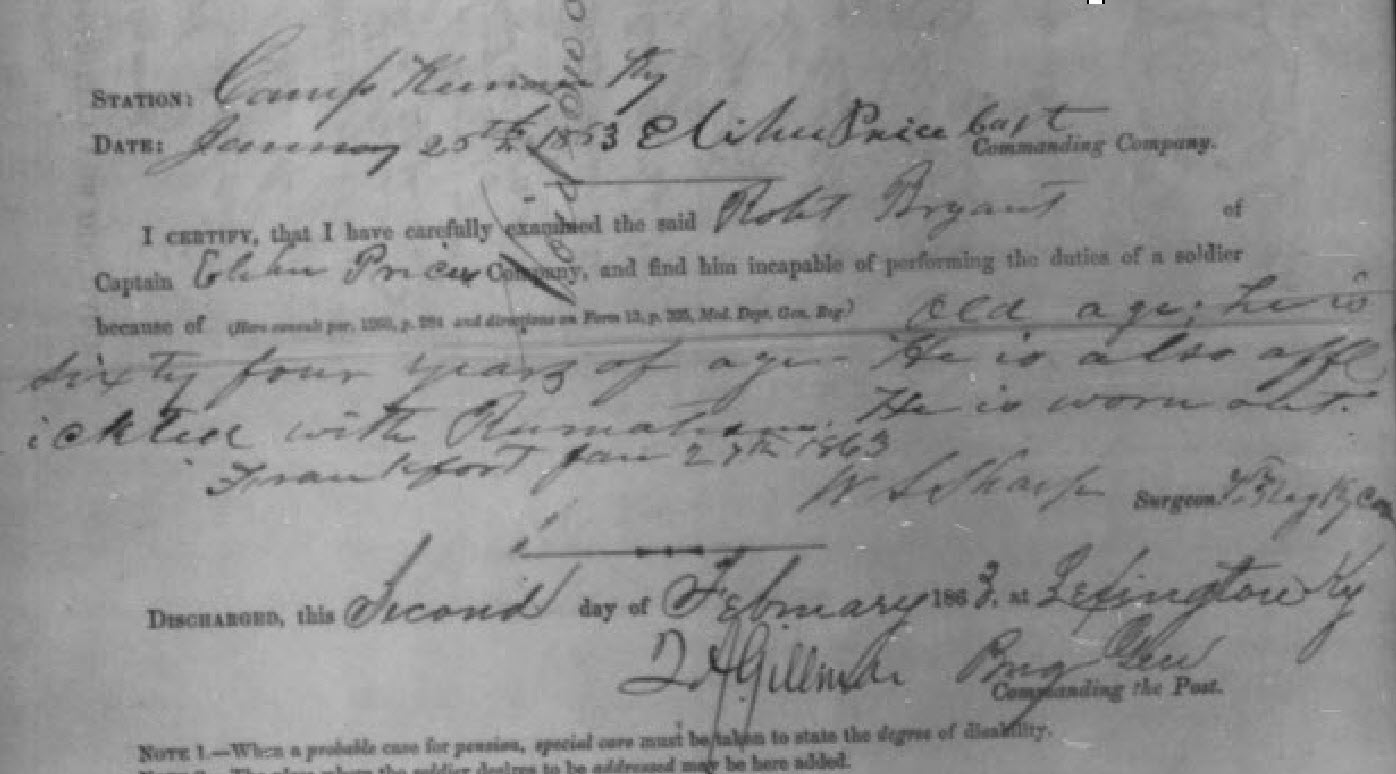 STATION: Camp Ky
DATE: January 25th 1863 Elihu Price Capt
Commanding Company.
I CERTIFY, that I have carefully examined the said Robt Bryant of
Captain Elihu Prices Company, and find him incapable of performing the duties of a soldier
because of (Here consult par. 1260, p. 284 and directions on Form 13, p. 325, Med. Dept. Gen. Reg.) old age; he is
sixty four years of age - He is also affl
icktted with Rumatism. He is worn out.
Frankfort Jan 27th 1863
W S Sharp Surgeon. Ky
DISCHARGED, this Second day of February 1863, at Lexington Ky
Q A Gillmore Brig Gen
Commanding the Post.
NOTE 1.—When a probable case for pension, special care must be taken to state the degree of disability.
NOTE 2.—The place where the soldier desires to be addressed may be here added.